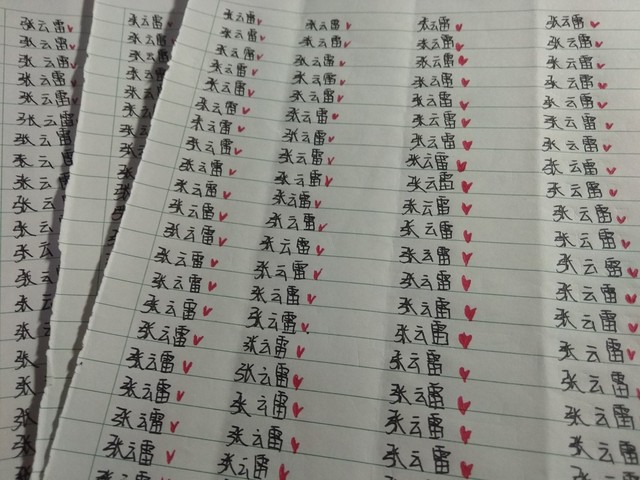 张云雷 张云雷 张云雷 张云雷 张云雷 张云雷
张云雷 张云雷 张云雷 张云雷 张云雷 张云雷
张云雷 张云雷 张云雷 张云雷 张云雷 张云雷
张云雷 张云雷 张云雷 张云雷 张云雷 张云雷
张云雷 张云 张云雷 张云雷 张云雷 张云雷
张云雷 张云 张云雷 张云雷 张云雷 张云雷
张云雷 张 张云雷 张云雷 张云雷 张云雷
张云雷 张 张云雷 张云雷 张云雷 张云雷
张云 张 张云雷 张云雷 张云雷 张云雷
张云 张云雷 张云雷 张云雷 张云雷
张云 张云雷 张云雷 张云雷 张云雷
张云 张云雷 张云雷 张云雷 张云雷
张云 张云雷 张云雷 张云雷 张云雷
张云 张云雷 张云雷 张云雷 张云雷
张 张云雷 张云雷 张云雷 张云雷
张 张云雷 张云雷 张云雷 张云雷
张 张云雷 张云雷 张云雷 张云雷
张 张云雷 张云雷 张云雷 张云雷
张 张云雷 张云雷 张云雷
张云雷 张云雷